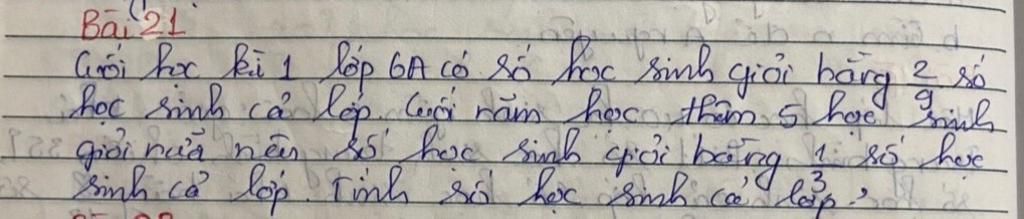 Bài 21
Cuối học kì 1 lớp 6A có số học sinh giỏi bằng 2/9 số
học sinh cả lớp. Cuối năm học thêm 5 học sinh
giỏi nữa nên số học sinh giỏi bằng 1/3 số học
sinh cả lớp. Tính số học sinh cả lớp?